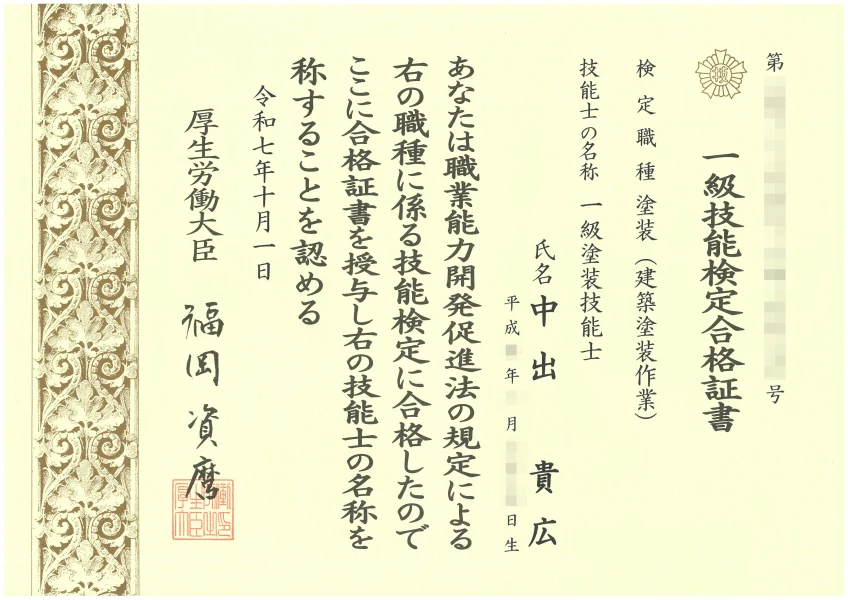 第 号
一級技能検定合格証書
検定職種 塗装(建築塗装作業)
技能士の名称 一級塗装技能士
氏名 中出 貴広
平成 年 月 日生
あなたは職業能力開発促進法の規定による
右の職種に係る技能検定に合格したので
ここに合格証書を授与し右の技能士の名称を
称することを認める
令和七年十月一日
厚生労働大臣 福岡 資麿